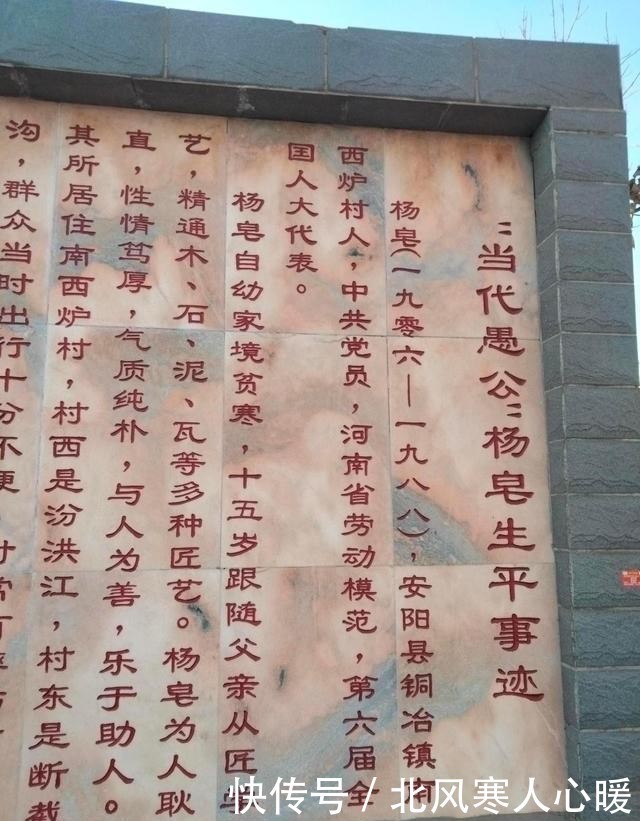 "当代愚公"杨皂生平事迹
杨皂(一九零六—一九八八)，安阳县铜冶镇南
西炉村人，中共党员，河南省劳动模范，第六届全
国人大代表。
杨皂自幼家境贫寒，十五岁跟随父亲从匠
艺，精通木、石、泥、瓦等多种匠艺。杨皂为人耿
直，性情笃厚，气质纯朴，与人为善，乐于助人。
其所居住南西炉村，村西是汾洪江，村东是断截
沟，群众当时出行十分不便
快传号 / 北风寒人心暖